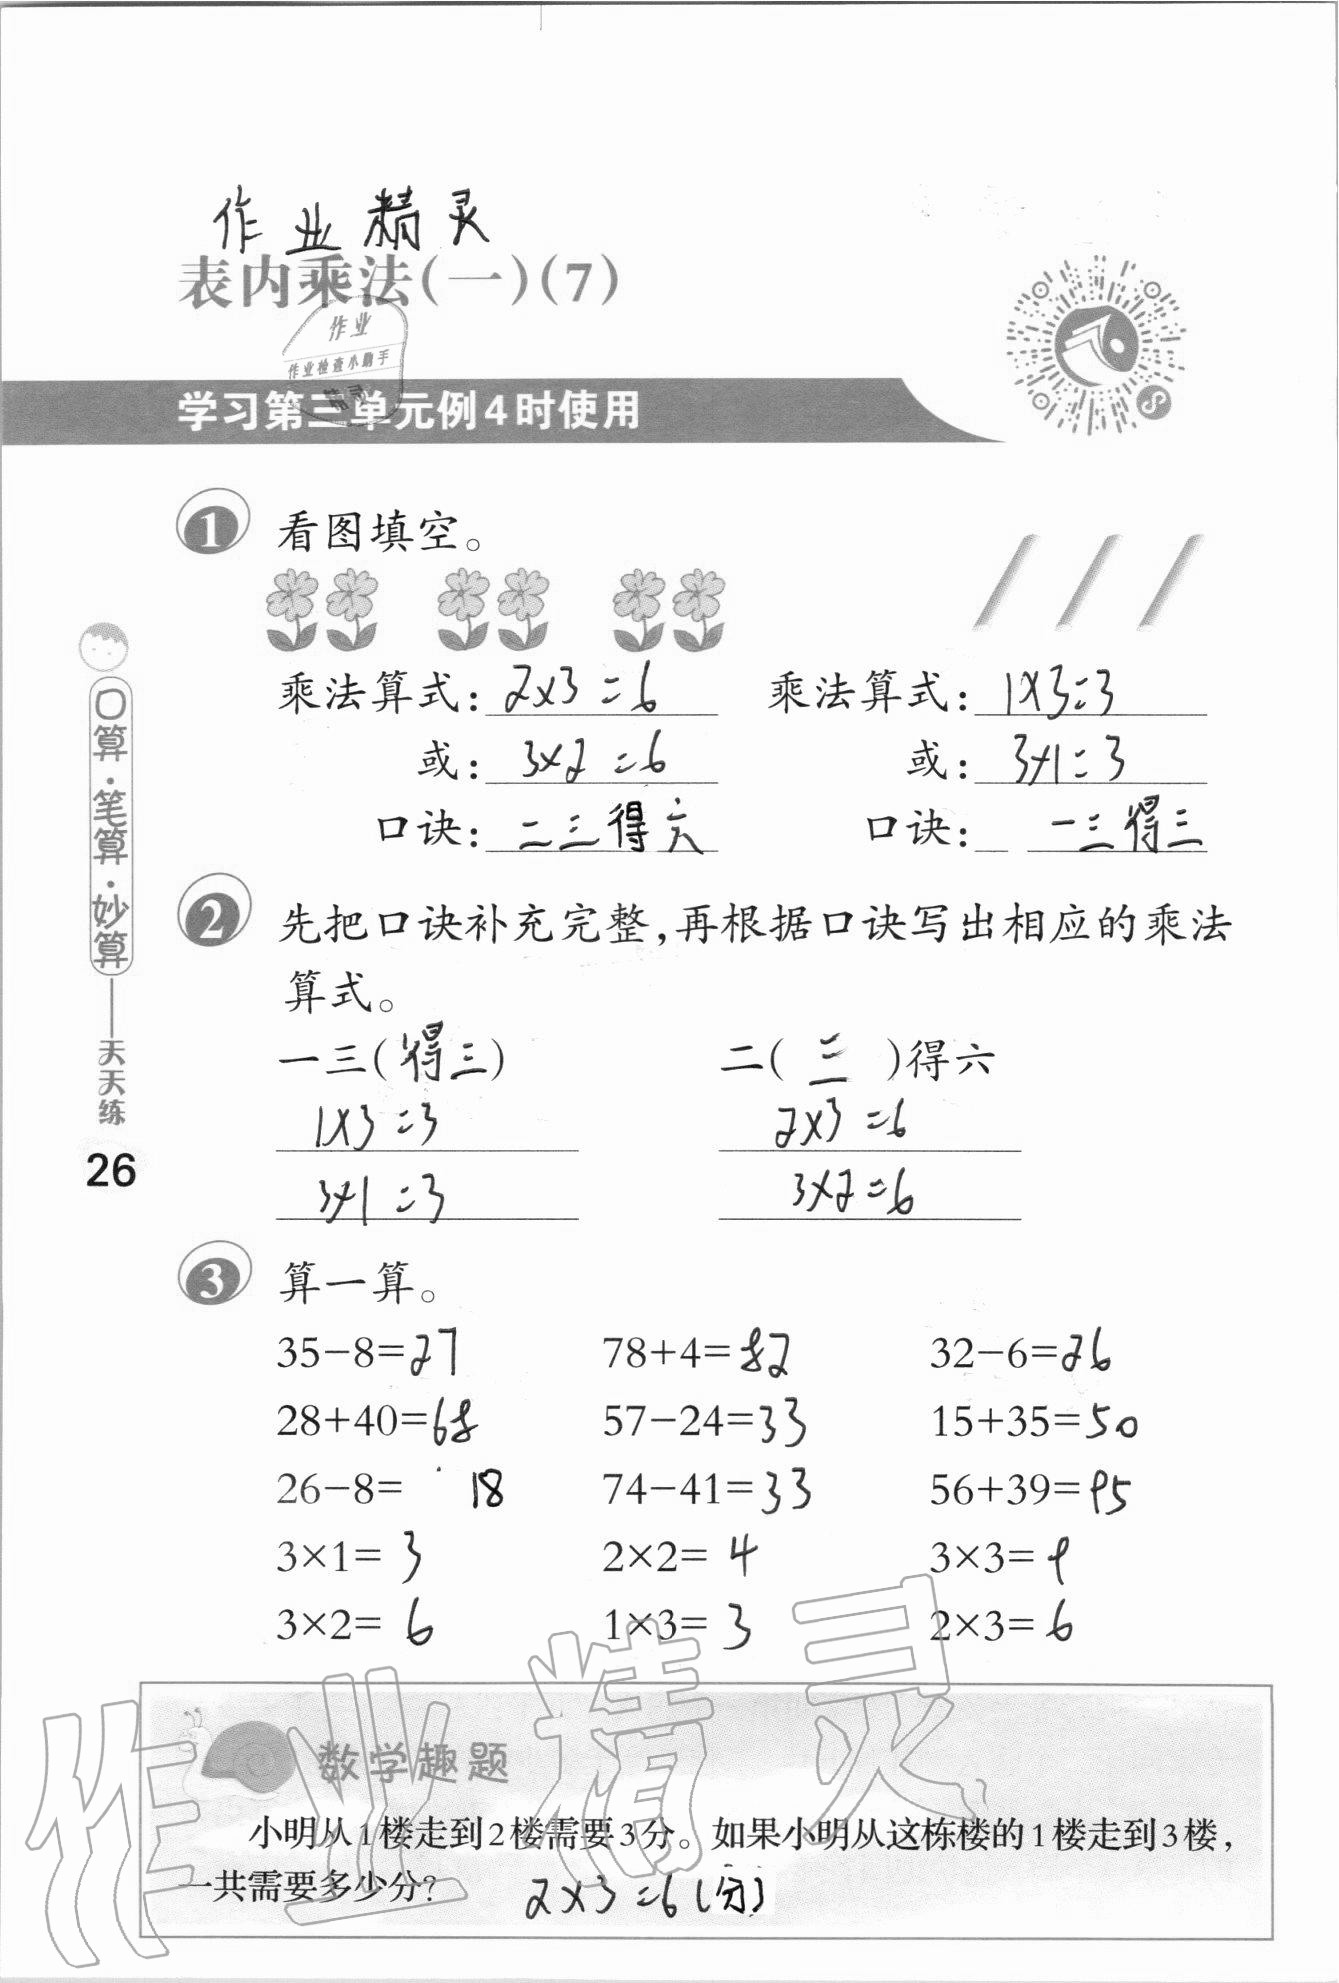 作业精灵
表内乘法(一)(7)
作业
作业检查小助手
精灵
学习第三单元例4时使用
1 看图填空。
乘法算式：2×3=6 乘法算式：1×3=3
或：3×2=6 或：3×1=3
口诀：二三得六 口诀：一三得三
2 先把口诀补充完整,再根据口诀写出相应的乘法
算式。
一三(得三) 二(三)得六
1×3=3 2×3=6
3×1=3 3×2=6
3 算一算。
35-8=27 78+4=82 32-6=26
28+40=68 57-24=33 15+35=50
26-8=18 74-41=33 56+39=95
3×1=3 2×2=4 3×3=9
3×2=6 1×3=3 2×3=6
数学趣题
小明从1楼走到2楼需要3分。如果小明从这栋楼的1楼走到3楼,
一共需要多少分? 2×3=6(分)
口算·笔算·妙算——天天练
26
作业精灵